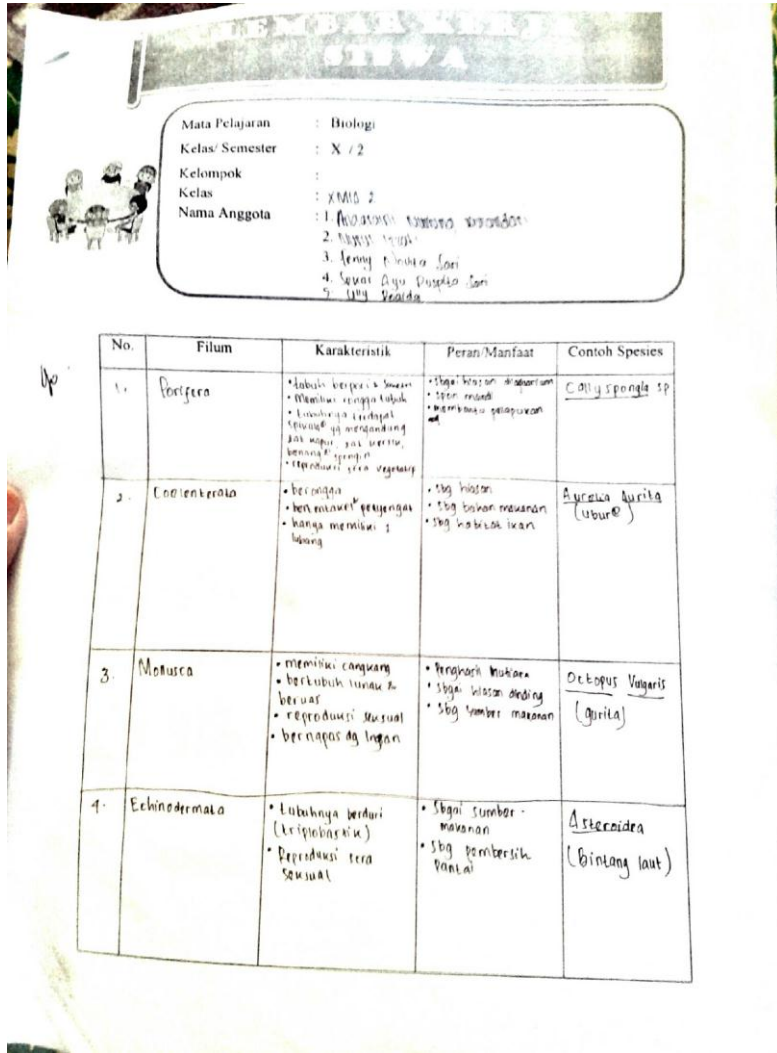 LEMBAR KERJA
SISWA
Mata Pelajaran : Biologi
Kelas/ Semester : X / 2
Kelompok :
Kelas : X MIA 2
Nama Anggota : 1.
2.
3. Jenny Sari
4. Ayu Puspita Sari
5.
No. Filum Karakteristik Peran/Manfaat Contoh Spesies
1. Porifera
• tubuh berpori
• Memiliki rongga tubuh
• tubuhnya terdapat
yg mengandung
zat kapur, zat kersik,
benang² spongin
• reproduksi vegetatif
• sbgai hiasan
• spon mandi
• membantu pelapukan
Callyspongia sp
2. Coelenterata
• berongga
• penyengat
• hanya memiliki 1
lubang
• sbg hiasan
• sbg bahan makanan
• sbg habitat ikan
Aurelia Aurita
(ubur²)
3. Mollusca
• memiliki cangkang
• bertubuh lunak &
beruas
• reproduksi seksual
• bernapas dg
• Penghasil mutiara
• sbgai hiasan dinding
• sbg sumber makanan
Octopus Vulgaris
(gurita)
4. Echinodermata
• tubuhnya berduri
• Reproduksi
seksual
• Sbgai sumber
makanan
• sbg pembersih
Pantai
Asteroidea
(Bintang laut)